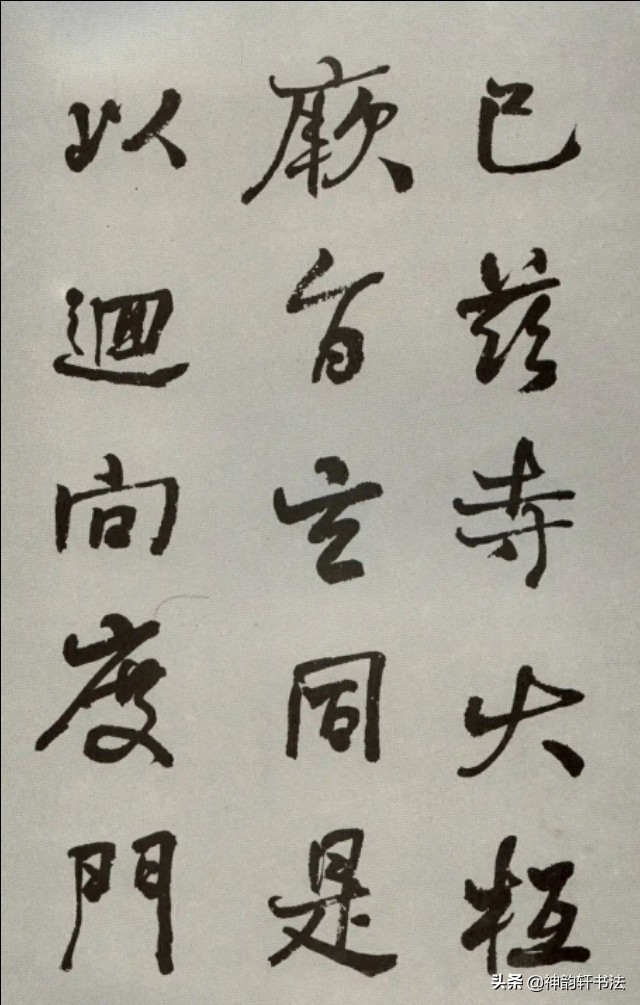 已兹寺大抵
厥旨玄同是
以迴向度門
头条 @神韵轩书法